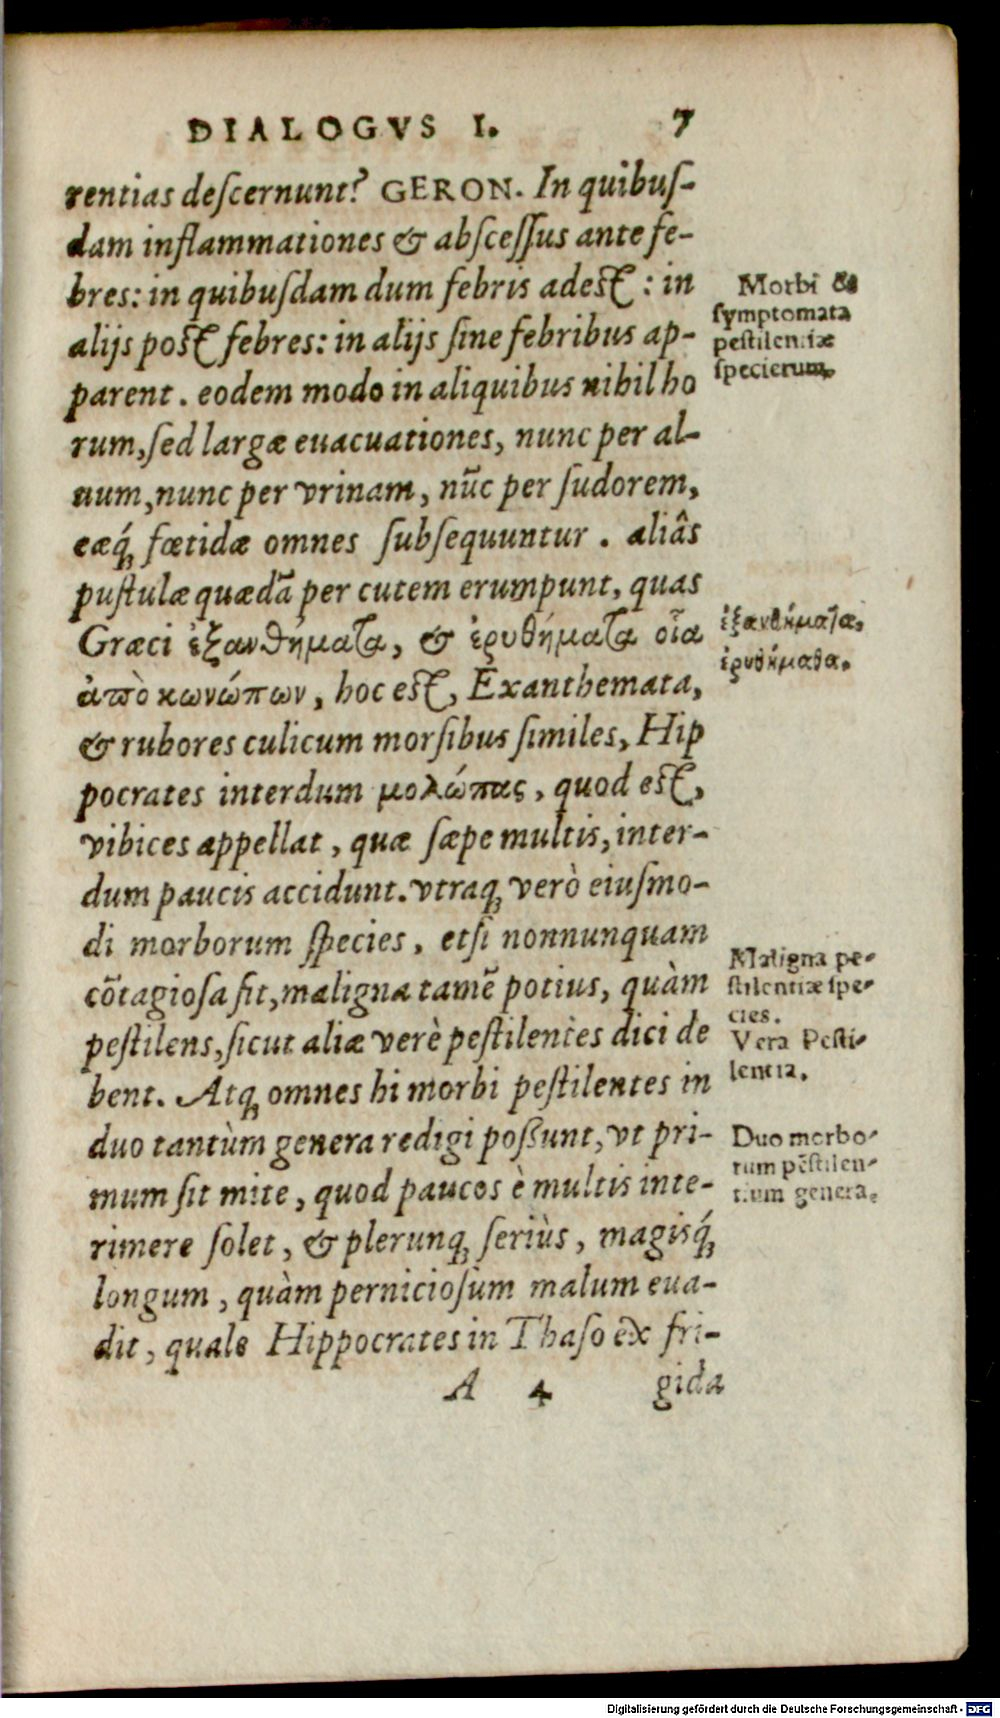 DIALOGVS I. 7
rentias deſcernunt? GERON. In quibuſ-
dam inflammationes & abſceſſus ante fe-
bres: in quibuſdam dum febris adest: in
alijs post febres: in alijs ſine febribus ap-
parent. eodem modo in aliquibus nihil ho
rum, ſed largæ euacuationes, nunc per al-
uum, nunc per vrinam, nūc per ſudorem,
eæq́; fœtidæ omnes ſubſequuntur. aliâs
puſtulæ quædā per cutem erumpunt, quas
Græci ἐξανθήματα, & ἐρυθήματα οἷα
ἀπὸ κωνώπων, hoc est, Exanthemata,
& rubores culicum morſibus ſimiles, Hip
pocrates interdum μολώπας, quod est,
vibices appellat, quæ ſæpe multis, inter-
dum paucis accidunt. vtraq; verò eiuſmo-
di morborum ſpecies, etſi nonnunquam
cōtagioſa ſit, maligna tamē potius, quàm
peſtilens, ſicut aliæ verè peſtilentes dici de
bent. Atq; omnes hi morbi peſtilentes in
duo tantùm genera redigi poßunt, vt pri-
mum ſit mite, quod paucos è multis inte-
rimere ſolet, & plerunq; ſeriùs, magisq́;
longum, quàm pernicioſum malum eua-
dit, quale Hippocrates in Thaſo ex fri-
A 4 gida
Morbi &
ſymptomata
peſtilentiæ
ſpecierum.
ἐξανθήματα,
ἐρυθήματα.
Maligna pe-
ſtilentiæ ſpe-
cies.
Vera Peſti-
lentia.
Duo morbo-
rum pēſtilen-
tium genera.
Digitalisierung gefördert durch die Deutsche Forschungsgemeinschaft - DFG